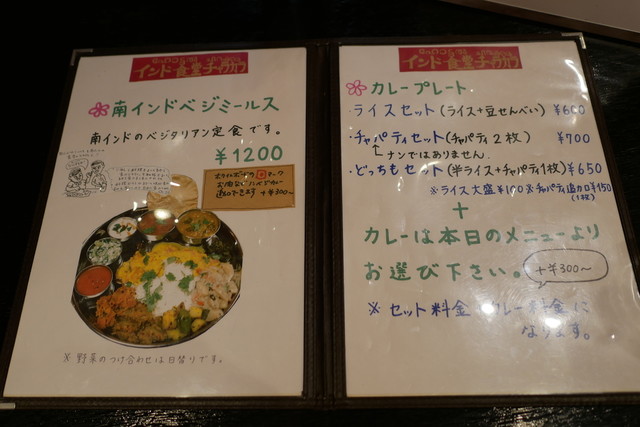 南インドベジミールス
南インドのベジタリアン定食です。
¥1200
追加できます +¥300〜
※ 野菜のつけ合わせは日替りです。
インド食堂
カレープレート
・ライスセット(ライス+豆せんべい) ¥600
・チャパティセット(チャパティ2枚) ¥700
ナンではありません.
・どっちもセット(半ライス+チャパティ1枚)¥650
※ライス大盛¥100 ※チャパティ追加¥150
(1枚)
+
カレーは本日のメニューより
お選び下さい。
+¥300〜
※ セット料金 カレー料金に
なります。